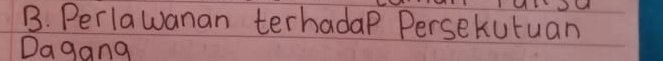 B. Perlawanan terhadap Persekutuan
Dagang